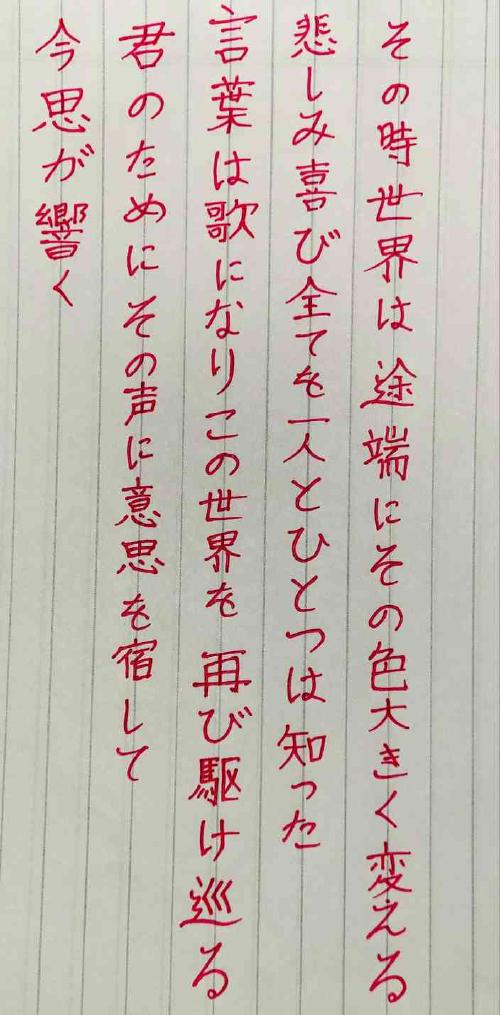 その時世界は途端にその色大きく変える
悲しみ喜び全てを一人とひとつは知った
言葉は歌になりこの世界を再び駆け巡る
君のためにその声に意思を宿して
今思が響く